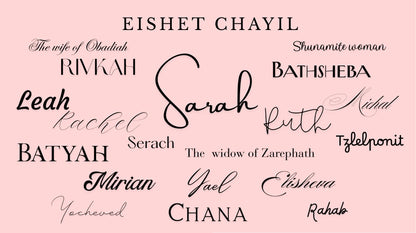 EISHET CHAYIL
The wife of Obadiah
Shunamite woman
RIVKAH
BATHSHEBA
Sarah
Leah
Michal
Rachel
Ruth
Serach
Tzlelponit
BATYAH
The widow of Zarephath
Mirian
Yael
Elisheva
Yocheved
CHANA
Rahab